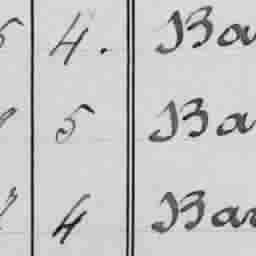 5 4. Ba
5 Ba
4 Bar